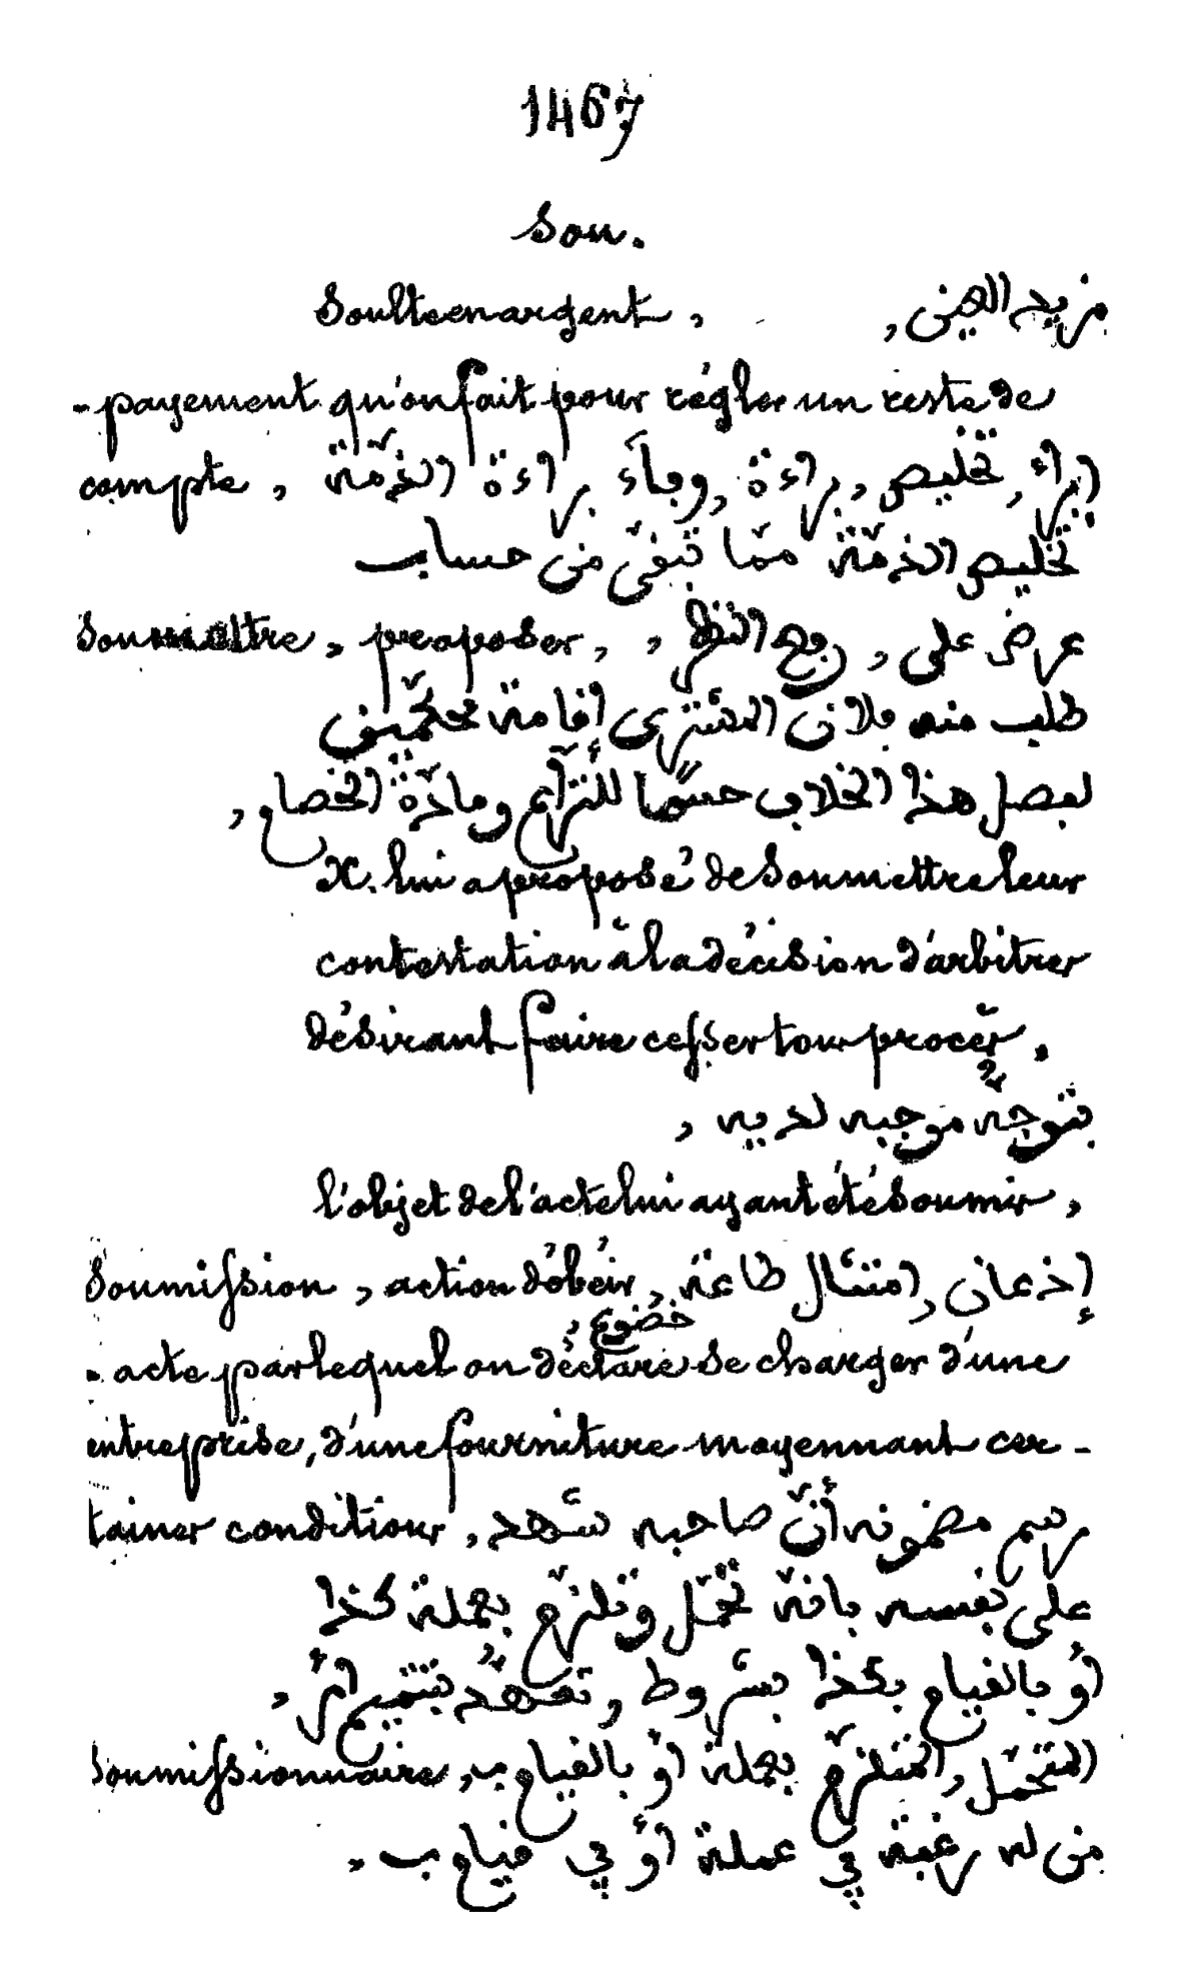 1467
Sou.
Soulte en argent, مزيد العين,
- payement qu'on fait pour régler un reste de
compte, إبراء, تخليص, براءة, وجاء براءة الذمّة
تخليص الذمّة ممّا تبقى من حساب
Soumettre, proposer, عرض على, رجع النظر,
طلب منه فلان المشتري إقامة محكّمين
لفصل هذا الخلاف حسمًا للنزاع ومادّة الخصام,
X. lui a proposé de soumettre leur
contestation à la décision d'arbitres
désirant faire cesser tous procès.
بتوجّه موجبه لديه,
l'objet de l'acte lui ayant été soumis,
Soumission, action d'obéir, إذعان, امتثال طاعة,
خضوع,
- acte par lequel on déclare se charger d'une
entreprise, d'une fourniture moyennant cer-
taines conditions, رسم مضمونه أنّ صاحبه شهد
على نفسه بانّه تحمّل وتلزّم بعملة كذا
أو بالقيام بكذا بشروط, تعهّد بتتميم امر,
Soumissionnaire, المتحمّل, المتلزّم بعملة أو بالقيام ب
من له رغبة في عملة أو في قيام ب.